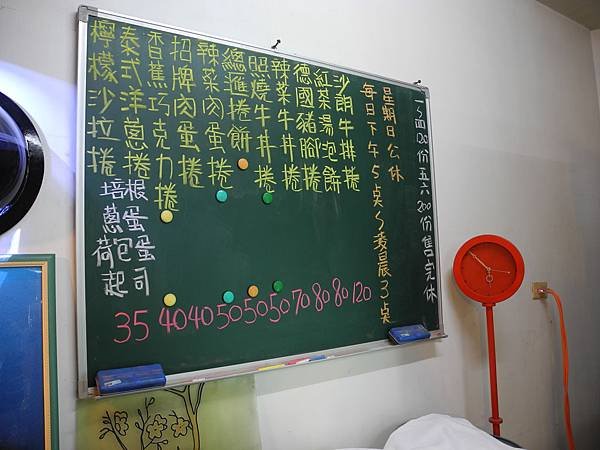 一~四120份五六200份售完休
星期日公休
每日下午5点~凌晨3点
沙朗牛排捲
紅茶湯泡餅
德國豬腳捲
辣菜牛丼捲
照燒牛丼捲
總匯捲餅
辣菜肉蛋捲
招牌肉蛋捲
香蕉巧克力捲
泰式洋蔥捲
檸檬沙拉捲
培根
蔥蛋
荷包蛋
起司
35 40 40 50 50 50 70 80 80 120